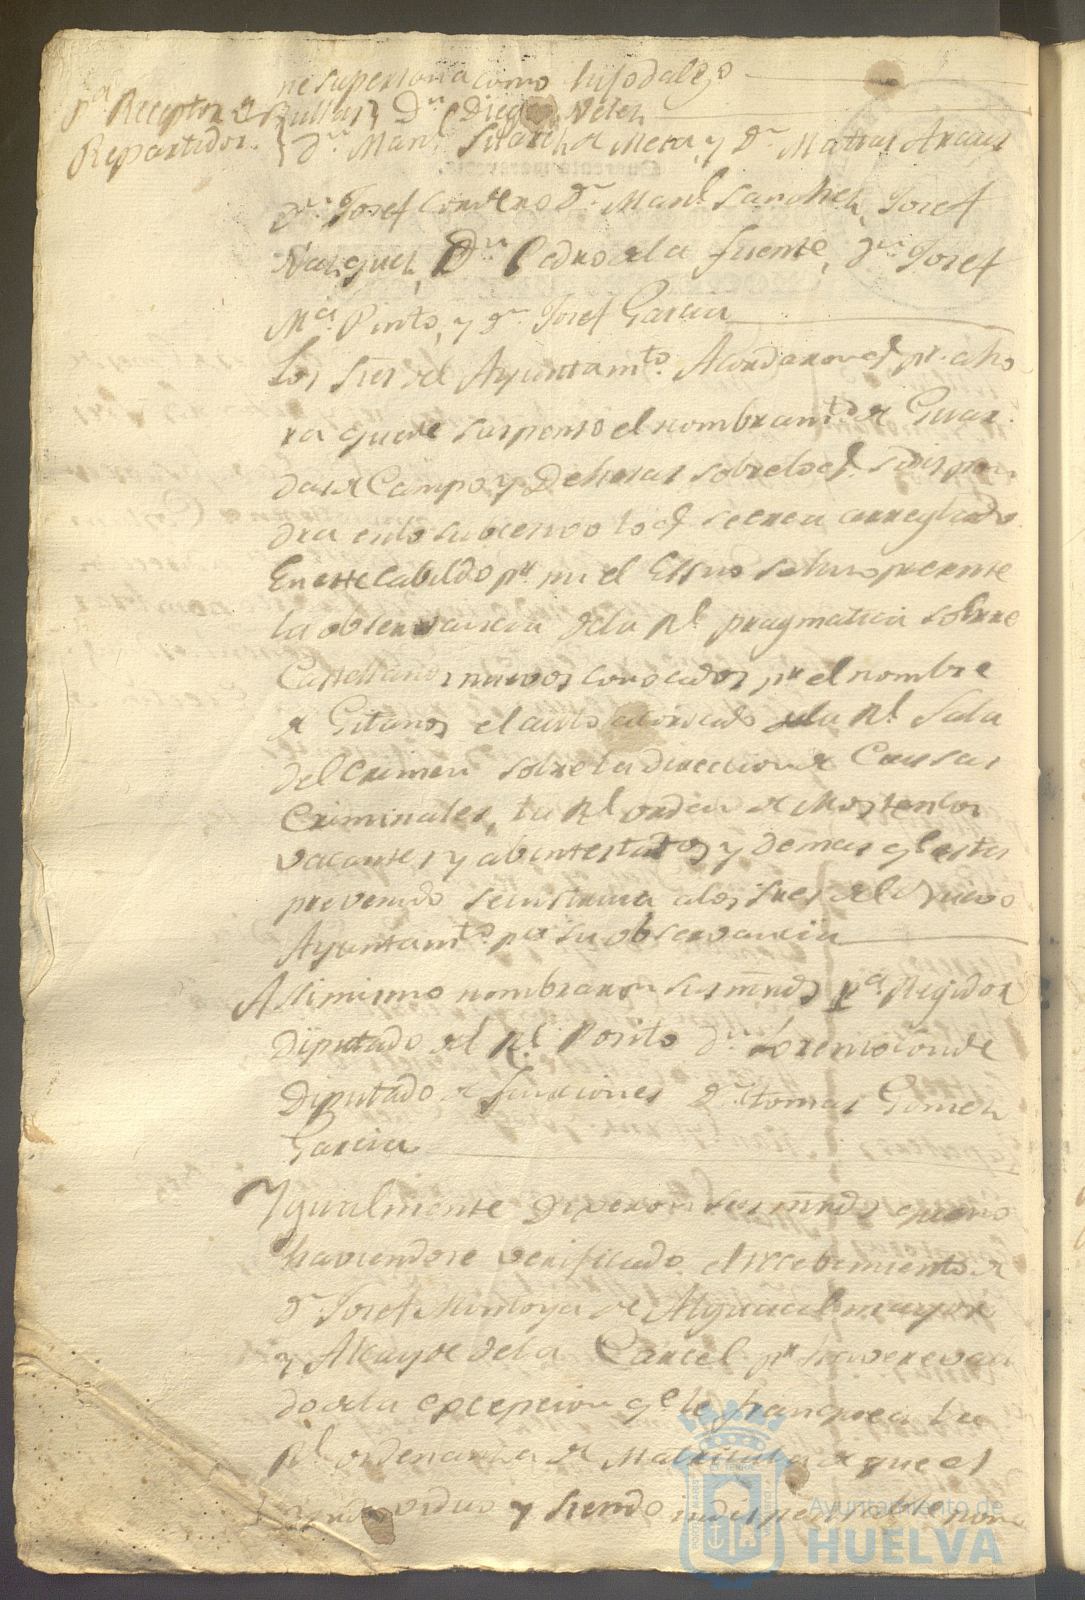 ne supersona como hijodalgo
Pa. Receptor de Bullas Dn. Diego Velez
Repartidor. Dn. Manl. Suarez de Mera, y Dn. Matias Araus
Dn. Josef Cordero Dn. Manl. Sanchez, Josef
Vazquez, Dn. Pedro dela Fuente, Dn. Josef
Ma. Pinto, y Dn. Josef Garcia
Los Sres. del Ayuntamto. Acordaron q. pr. aho
ra quede suspenso el nombramto. de Guar
das de Campo y Dehesas sobrelo q. se dispon
dra enlo subcesivo lo q. se crea arreglado
En este Cabildo pr. mi el Essno se hizo presente
la observancia dela Rl. pragmatica sobre
Castellanos nuevos conocidos pr. el nombre
de Gitanos el auto acordado dela Rl. Sala
del Crimen sobre la direccion de Causas
Criminales, la Rl. orden de Mostencos
vacantes y abintestatos y demas qe. esta
prevenido seinstruia alos Sres del Nuevo
Ayuntamto. pa. su observancia
Asimismo nombraron sus mrds. pa. Regidor
Diputado del Rl. Posito Dn. Lorenso Conde
Diputado de Funciones Dn. Tomas Gomez
Garcia
Ygualmente dixeron sus mrds. que no
haviendose verificado el recebimiento de
Dn. Josef Montoya de Alguacil mayor
y Alcayde dela Carcel pr. haverse vali
do dela excepcion qe. le franquea la
Rl. ordenanza de Matricula de que es
individuo y siendo indispensable pone
Ayuntamiento de
HUELVA